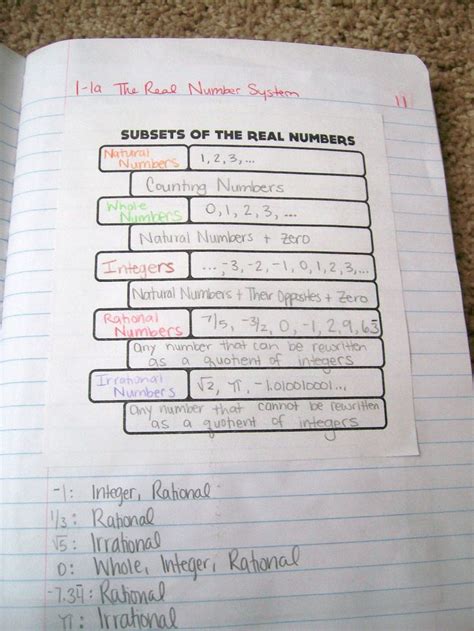 1-1a The Real Number System
11
SUBSETS OF THE REAL NUMBERS
Natural Numbers 1, 2, 3, ...
Counting Numbers
Whole Numbers 0, 1, 2, 3, ...
Natural Numbers + Zero
Integers ..., -3, -2, -1, 0, 1, 2, 3, ...
Natural Numbers + Their Opposites + Zero
Rational Numbers 7/5, -3/2, 0, -1, 2, 9, 6.3̅
any number that can be rewritten
as a quotient of integers
Irrational Numbers √2, π, -1.010010001...
any number that cannot be rewritten
as a quotient of integers
-1: Integer, Rational
1/3: Rational
√5: Irrational
0: Whole, Integer, Rational
-7.34̅: Rational
π: Irrational